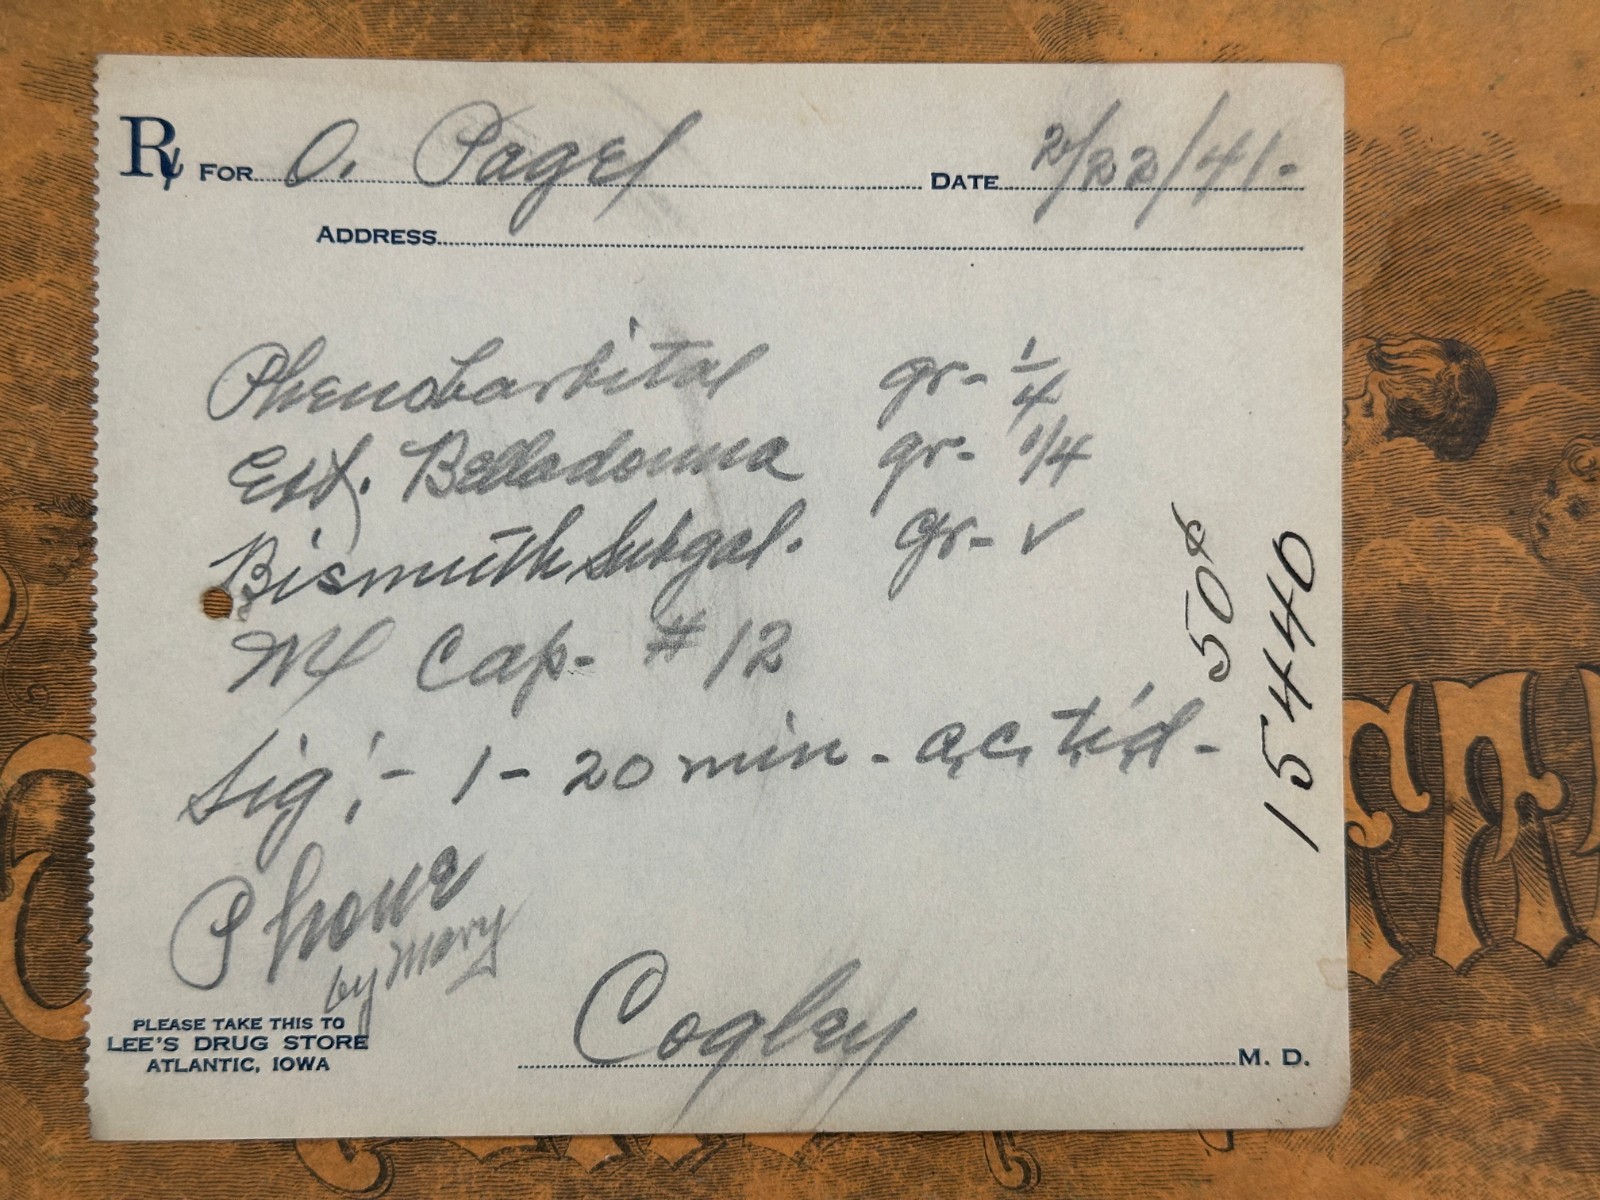 Rx FOR O. Pagel DATE 2/22/41-
ADDRESS
Phenobarbital gr- 1/4
Ext. Belladonna gr- 1/4
Bismuth Subgal. gr- v
M Cap- #12
Sig:- 1- 20 min- a.c. t.i.d-
Phone
by Mary
Cogley M. D.
PLEASE TAKE THIS TO
LEE'S DRUG STORE
ATLANTIC, IOWA
50¢
15440